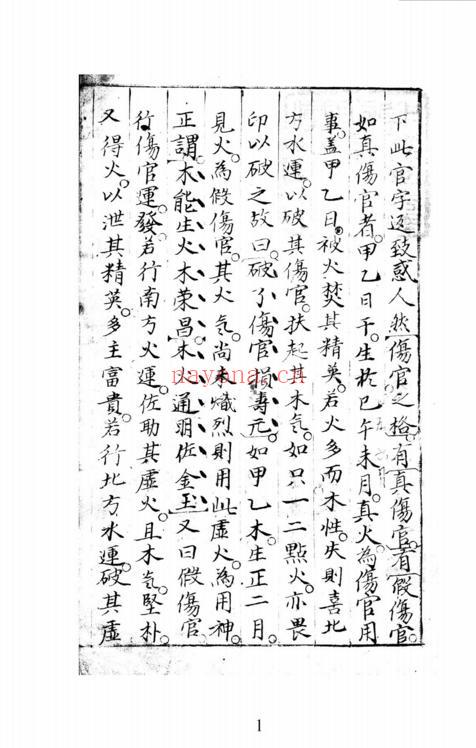 下此官字返致惑人然傷官之格有真傷官有假傷官
如真傷官者甲乙日干生於巳午未月真火為傷官用
事蓋甲乙日被火焚其精英若火多而木性失則喜北
方水運以破其傷官扶起其木氣如只一二點火亦畏
印以破之故曰破了傷官損壽元如甲乙木生正二月
見火為假傷官其火氣尚未熾烈則用此虛火為用神
正謂木能生火木荣昌木通明佐金玉又曰假傷官
行傷官運發若行南方火運佐助其虛火且木氣堅朴
又得火以泄其精英多主富貴若行北方水運破其虛
nayona.cn
1